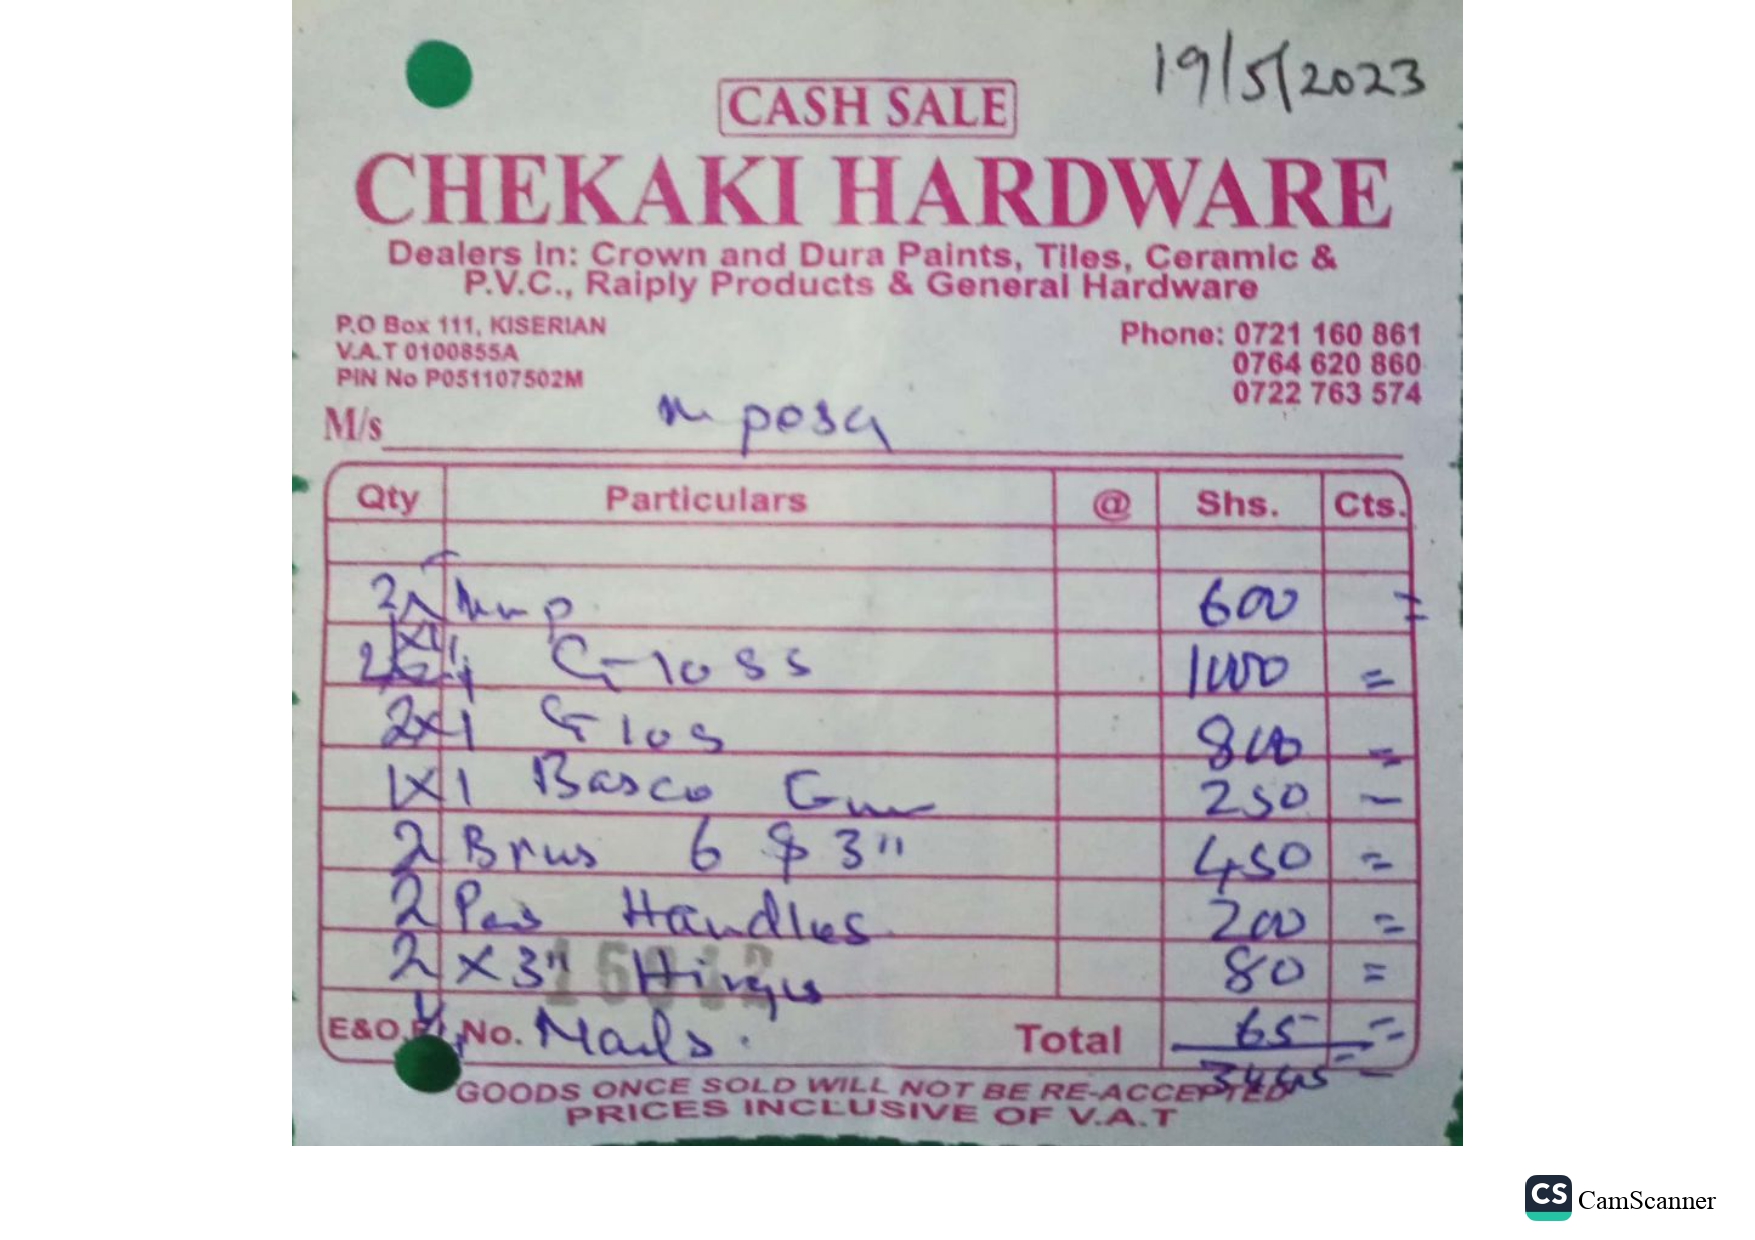 19/5/2023
CASH SALE
CHEKAKI HARDWARE
Dealers In: Crown and Dura Paints, Tiles, Ceramic &
P.V.C., Raiply Products & General Hardware
P.O Box 111, KISERIAN
V.A.T 0100855A
PIN No P051107502M
Phone: 0721 160 861
0764 620 860
0722 763 574
M/s mposa
Qty Particulars @ Shs. Cts.
2 600 =
Gloss 1000 =
2x1 Glos 800 =
1x1 Basco Gum 250 -
2 Brus 6 $ 3" 450 =
2 Handles 200 =
2 x 3" Hinges 80 =
E&O.E No. Nails. Total 65 =
GOODS ONCE SOLD WILL NOT BE RE-ACCEPTED
PRICES INCLUSIVE OF V.A.T
CS CamScanner